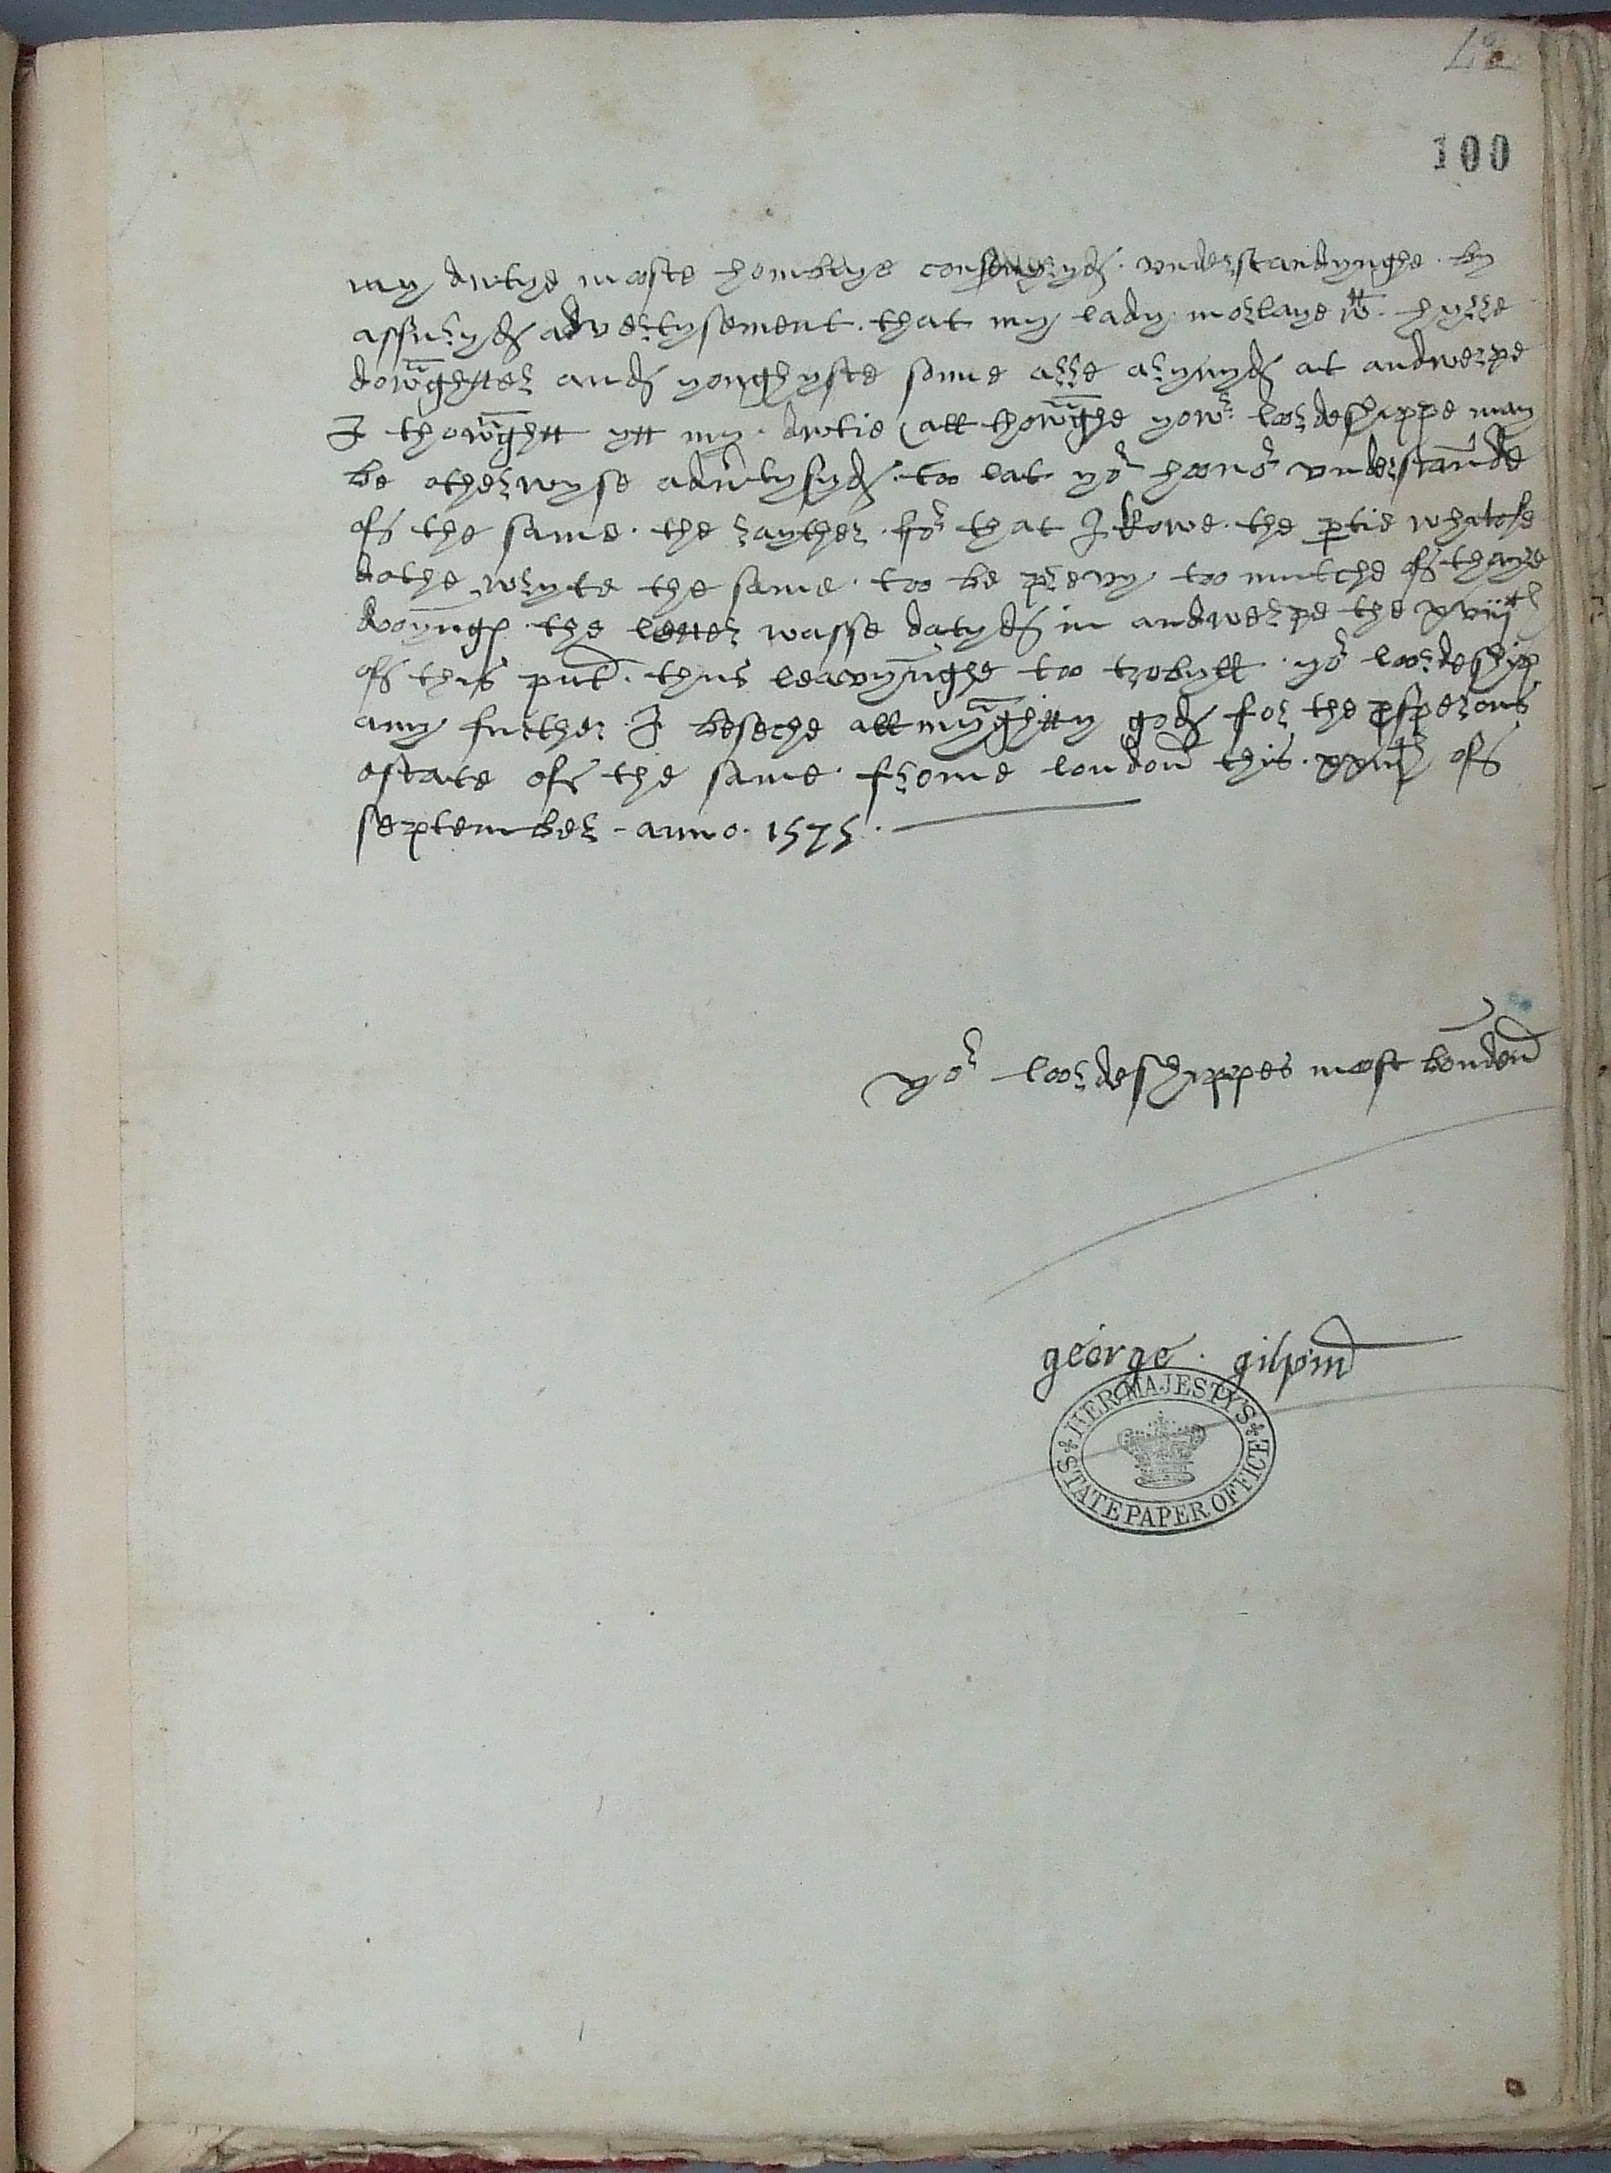 100
my dwtye mooste homblye consideryd. vnderstandynghe. by
assuryd advertysement. that my lady morlaye wt. hyrre
dowghtter and yonghyste sonne arre aryvyd at andwerpe
I thowghtt ytt my. dwtie (all thowghe yowr. loordeshippe may
be otherwyse advertysyd. too lat yor hoonor vnderstande
off the same. the rayther. for that I knowe. the ptie
dothe wryte the same. too be prevy. too mutche off thayre
dooyngs. the letter wasse datyd in andwerpe the xviijth
off this pnt. thus leavynghe too trobyll. yor loordeship
any further. I beseche all myghtty god for the psperous
estate off the same. frome london this. off
september. anno. 1575.
yor loordeshippes moost bonden
george. gilpin
HER MAJESTY'S
STATE PAPER OFFICE